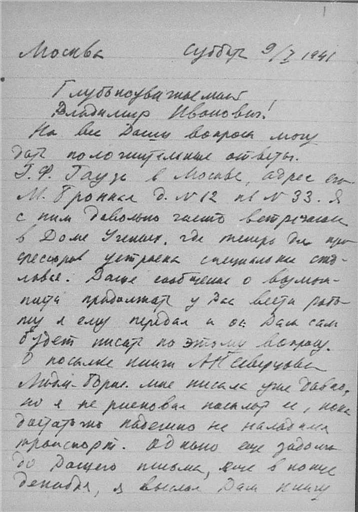 Москва суббота 9/I 1941
Глубокоуважаемый
Владимир Иванович!
На все Ваши вопросы могу
дать положительные ответы.
Г.Ф. Гаузе в Москве, адрес его
М. Бронная д. №12 кв №33. Я
с ним довольно часто встречаюсь
в Доме Ученых, где теперь для про-
фессоров устроена специальная сто-
ловая. Ваше сообщение о
продолжать у Вас вести рабо-
ту я ему передал и он Вам сам
будет писать по этому вопросу.
О посылке книги А.Н. Северцова
Людм. Борис. мне писала уже давно,
но я не рисковал посылать ее, пока
достаточно надежно не наладился
транспорт. Однако еще задолго
до Вашего письма, еще в конце
декабря, я выслал Вам книгу